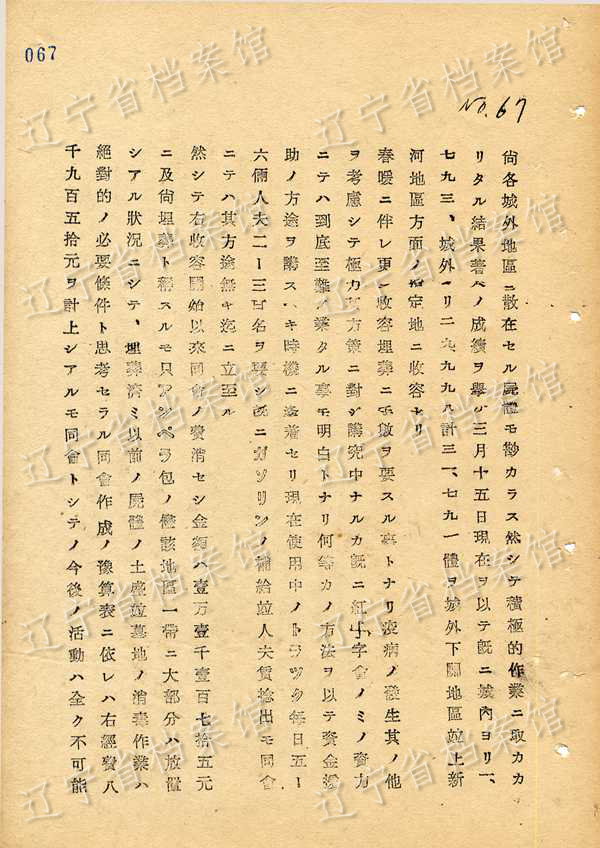 067
No.67
尙各城外地區ニ散在セル屍體モ尠カラス然シテ積極的作業ニ取カカ
リタル結果著ヘノ成績ヲ擧ケ三月十五日現在ヲ以テ既ニ城內ヨリ一、
七九三、城外ヨリ二九、九九八計三一、七九一體ヲ城外下關地區竝上新
河地區方面ノ指定地ニ收容セリ
春暖ニ伴レ更ニ收容埋葬ニ手數ヲ要スル事トナリ疫病ノ發生其ノ他
ヲ考慮シテ極力 方策ニ對シ講究中ナルカ既ニ紅卍字會ノミノ資力
ニテハ到底至難ノ業タル事モ明白トナリ何等カノ方法ヲ以テ資金援
助ノ方途ヲ講スヘキ時機ニ逢着セリ現在使用中ノトラツク每日五ー
六輛人夫二ー三百名ヲ要シ既ニガソリンノ補給竝人夫賃捻出モ同會
ニテハ其方途無キ迄ニ立至ル
然シテ右收容開始以來同會ノ費消セシ金額ハ壹万壹千壹百七拾五元
ニ及尙埋葬ト稱スルモ只アンペラ包ノ儘該地區一帶ニ大部分ハ放置
シアル狀況ニシテ、埋葬濟ミ以前ノ屍體ノ土盛竝墓地ノ消毒作業ハ
絕對的ノ必要條件ト思考セラル同會作成ノ豫算表ニ依レハ右經費八
千九百五拾元ヲ計上シアルモ同會トシテノ今後ノ活動ハ全ク不可能
辽宁省档案馆
辽宁省档案馆
辽宁省档案馆
辽宁省档案馆
辽宁省档案馆
辽宁省档案馆